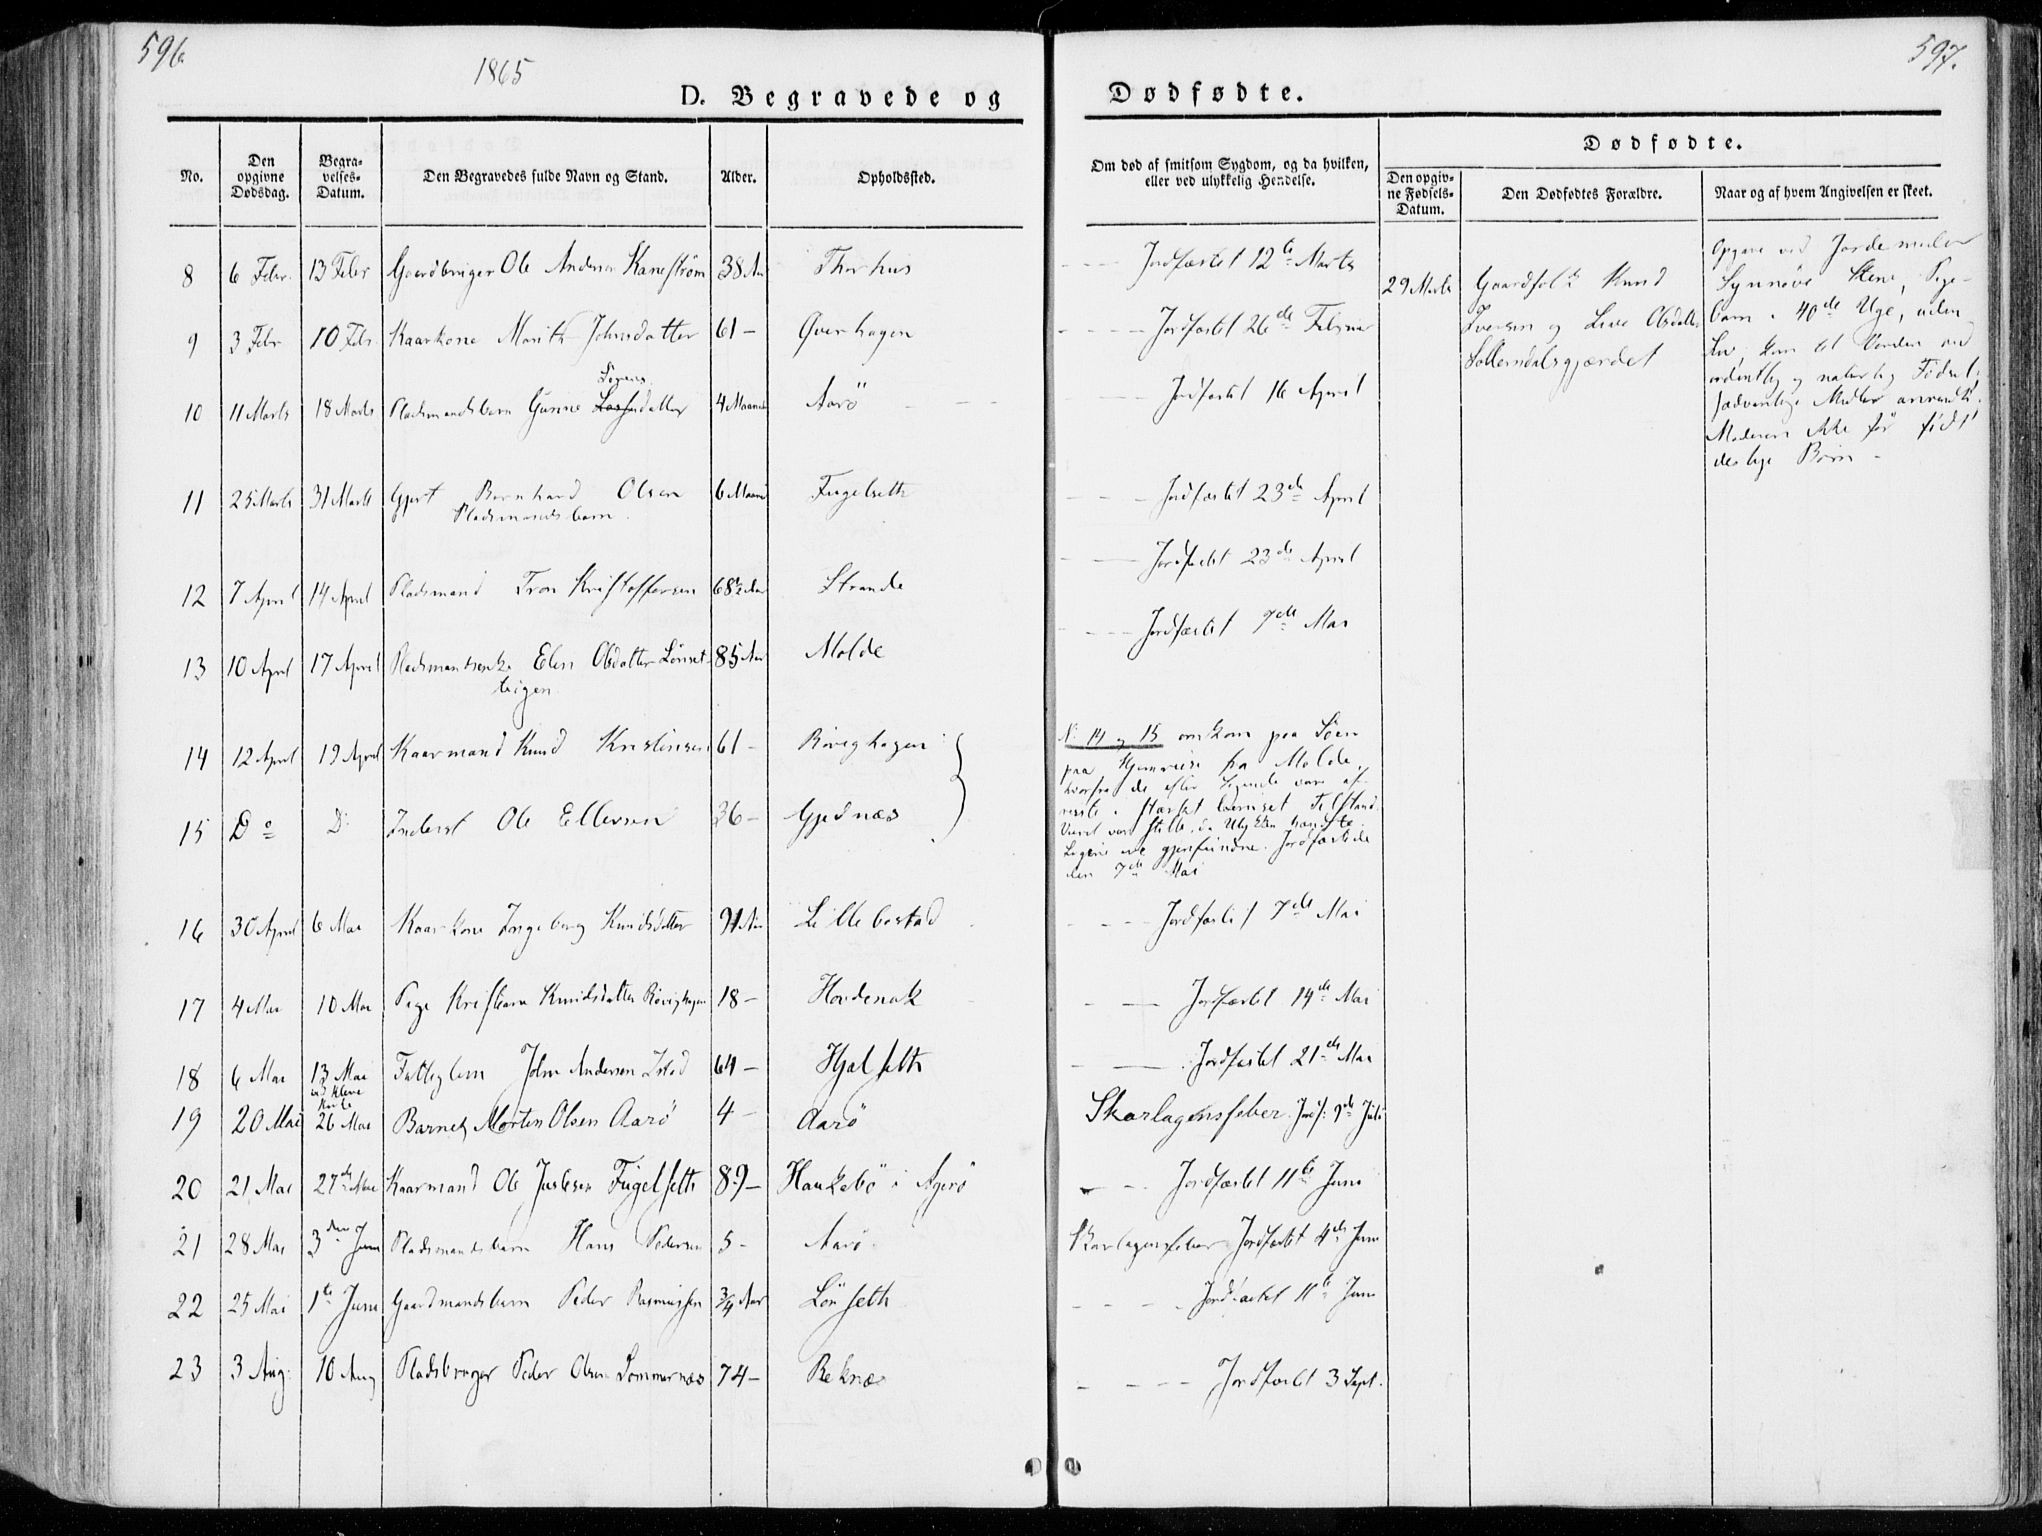 596.
597.
1865
D. Begravede og Dødfødte.
No.
Den opgivne Dødsdag.
Begravelses-Datum.
Den Begravedes fulde Navn og Stand.
Alder.
Opholdssted.
Om død af smitsom Sygdom, og da hvilken, eller ved ulykkelig Hendelse.
Dødfødte.
Den opgivne Fødsels-Datum.
Den Dødfødtes Forældre.
Naar og af hvem Angivelsen er skeet.
8 6 Febr. 13 Febr Gaardbruger Ole Andersen Kanestrøm 38 Aar Thorhus Jordfæstet 12te Marts
29 Marts Gaardfolk Knud Iversen og Live Olsdatter
Opgave ved Jordemoder
Synnøve Stene, Pige-
barn i 40de Uge, uden
Liv, kom til Verden ved
ordentlig og naturlig Fødsel;
sædvanlige Midler anvendte.
Moderen ikke før født
deslige Børn -
9 3 Febr 10 Febr Kaarkone Marith Johnsdatter 61 - Øverhagen Jordfæstet 26de Februar
10 11 Marts 18 Marts Pladsmandsbarn Gunne Sørensdatter 4 Maaneder Aarö Jordfæstet 16 April
11 25 Marts 31 Marts Gjert Bernhard Olsen 6 Maaned Fugelseth Jordfæstet 23de April
Pladsmandsbarn
12 7 April 14 April Pladsmand Tron Kristoffersen 68½ Aar Strande Jordfæstet 23de April
13 10 April 17 April Pladsmandsenke Elen Olsdatter Lönset- 85 Aar Molde Jordfæstet 7de Mai
teigen
14 12 April 19 April Kaarmand Knud Kristensen 61 - Röveghagen
15 Do Do Inderst Ole Ellevsen 36 - Gjednæs
No 14 og 15 omkom paa Söen
paa Hjemreise fra Molde,
hvorfra de efter Sigende vare af-
reiste i stærkt beruset Tilstand.
Veiret var stille, da Ulykken hændte.
Ligene ere gjenfundne. Jordfæstede
den 7de Mai
16 30 April 6 Mai Kaarkone Ingeborg Knudsdatter 91 Aar Lillebostad Jordfæstet 7de Mai
17 4 Mai 10 Mai Pige Kristiane Knudsdatter Röveghagen 18 - Hovdenak Jordfæstet 14de Mai
18 6 Mai 13 Mai Fattiglem John Andersen Istad 64 - Hjelseth Jordfæstet 21de Mai
ved Kleve Kirke
19 20 Mai 26 Mai Barnet Morten Olsen Aarö 4 - Aarö Skarlagensfeber. Jordf: 9de Juli
20 21 Mai 27de Mai Kaarmand Ole Justesen Fugelseth 89 - Haukebö i Agerö Jordfæstet 11te Juni
21 28 Mai 3die Juni Pladsmandsbarn Hans Pedersen 5 - Aarö Skarlagensfeber Jordfæstet 4de Juni
22 25 Mai 1te Juni Gaardmandsbarn Peder Rasmussen 3/4 Aar Lönseth Jordfæstet 11te Juni
23 3 Aug. 10 Aug Pladsbruger Peder Olsen Sommernæs 74 - Reknæs Jordfæstet 3 Sept.